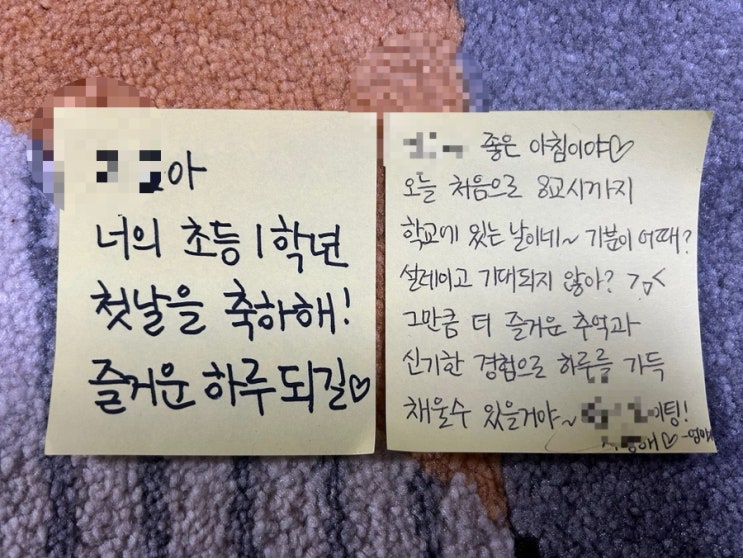 아
너의 초등 1학년
첫날을 축하해!
즐거운 하루 되길♡
좋은 아침이야♡
오늘 처음으로 8교시까지
학교에 있는 날이네~ 기분이 어때?
설레이고 기대되지 않아? >ㅁ<
그만큼 더 즐거운 추억과
신기한 경험으로 하루를 가득
채울수 있을거야~ 이팅!
해♡ -엄마